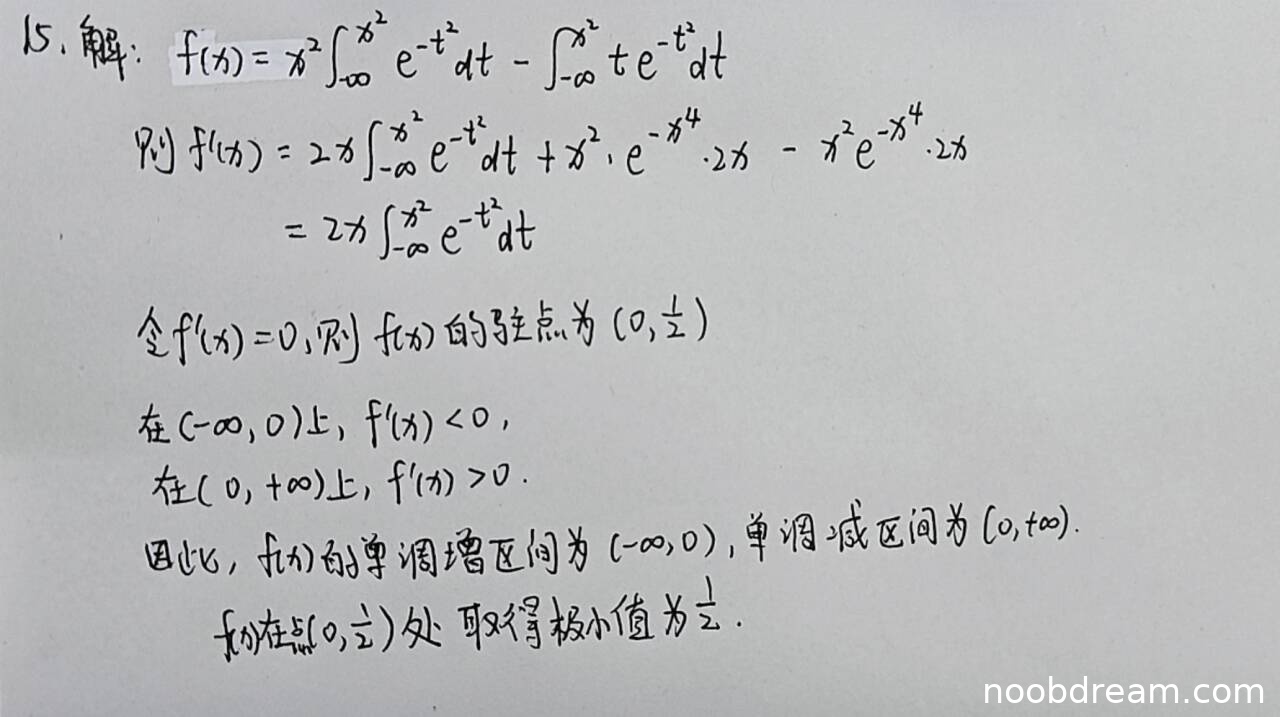 15. 解: f(x) = x²∫_{-∞}^{x²} e^{-t²}dt - ∫_{-∞}^{x²} te^{-t²}dt
则 f'(x) = 2x∫_{-∞}^{x²} e^{-t²}dt + x²·e^{-x⁴}·2x - x²e^{-x⁴}·2x
= 2x∫_{-∞}^{x²} e^{-t²}dt
令f'(x)=0,则 f(x)的驻点为(0,1/2)
在(-∞,0)上, f'(x)<0,
在(0,+∞)上, f'(x)>0.
因此, f(x)的单调增区间为(-∞,0),单调减区间为(0,+∞).
f(x)在点(0,1/2)处 取得极小值为1/2.
noobdream.com